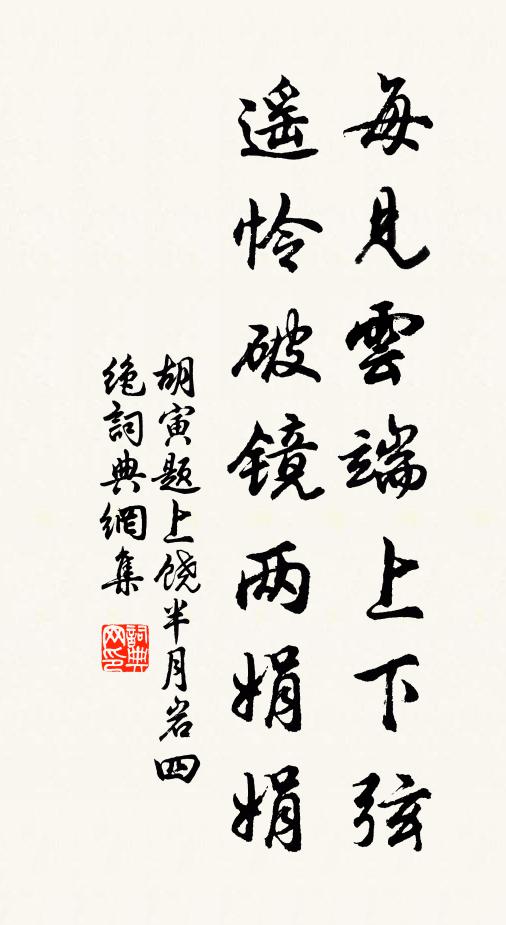 每見雲端上下弦
遥怜破镜两娟娟
胡寅题上饶半月岩四
绝詞典網集
詞典网印